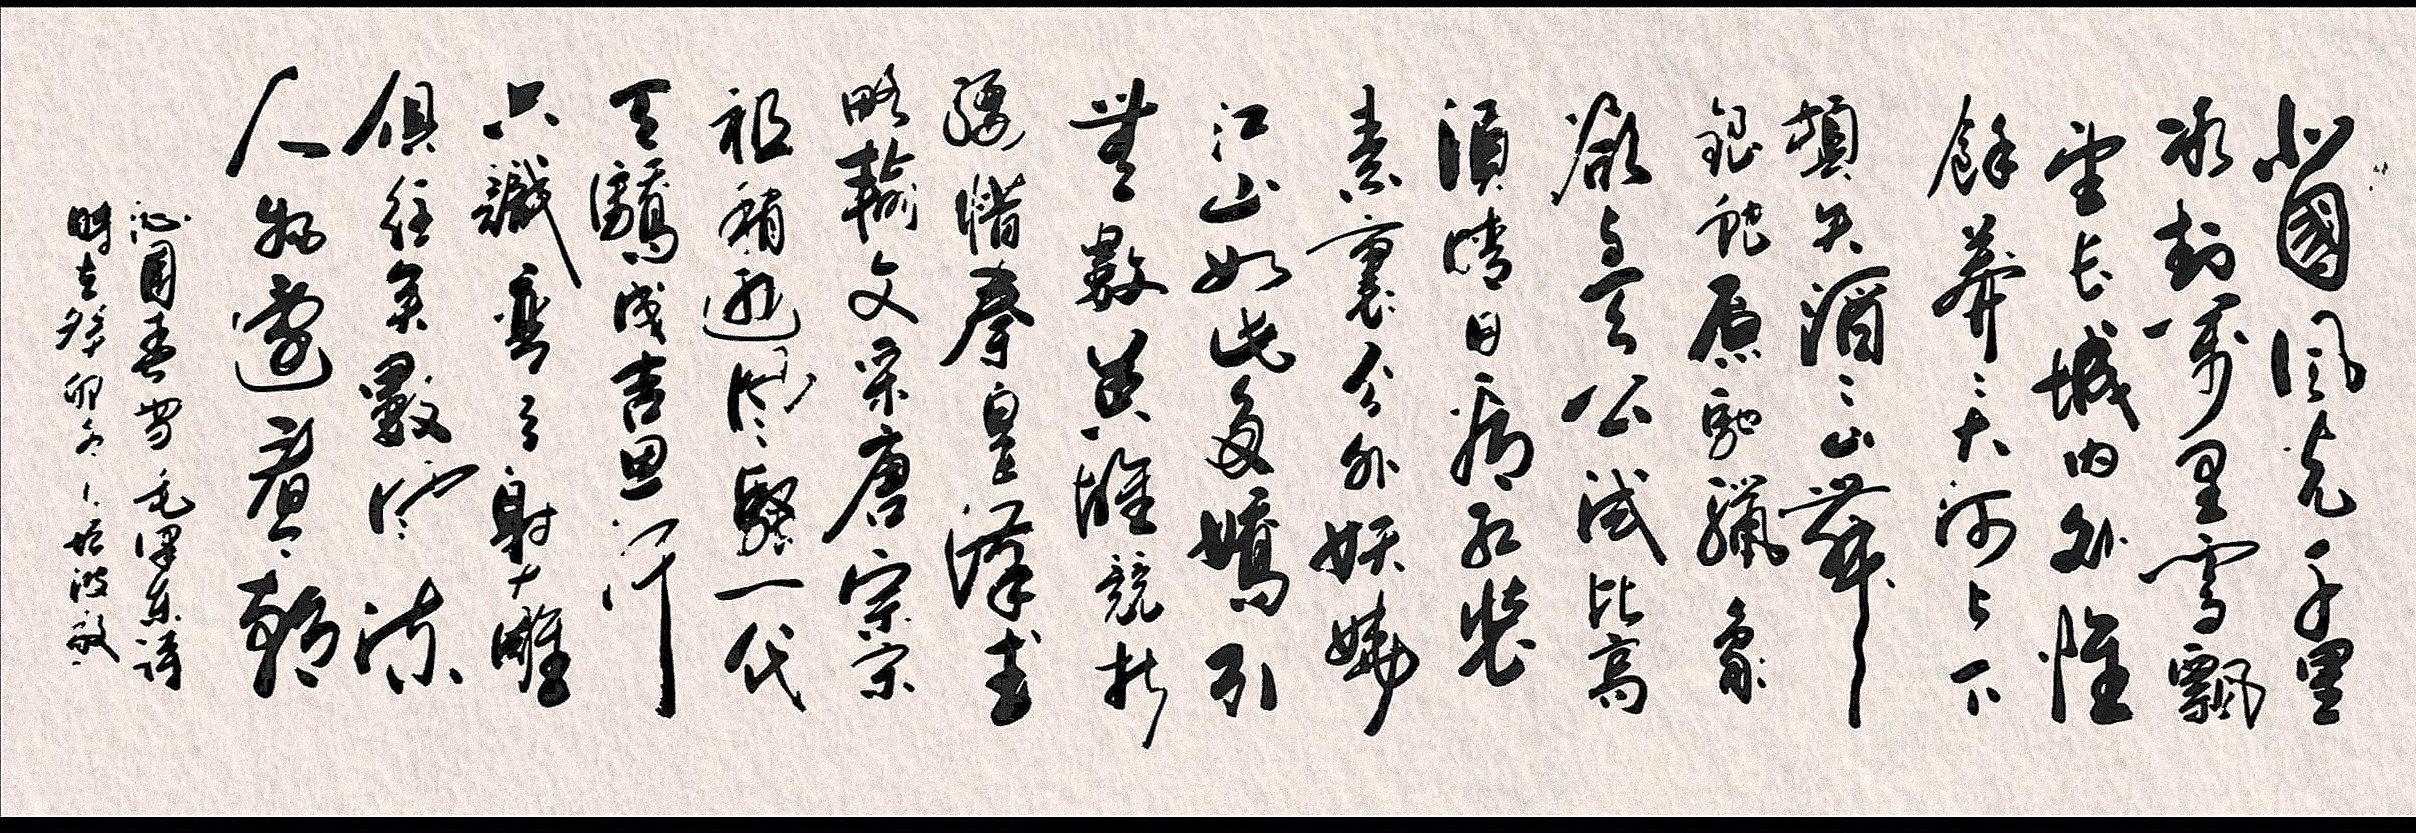 北國風光千里
冰封萬里雪飄
望長城內外惟
餘莽〻大河上下
頓失滔〻山舞
銀蛇原馳臘象
欲与天公試比高
須晴日看紅裝
素裹分外妖嬈
江山如此多嬌引
無數英雄競折
腰惜秦皇漢武
略輸文采唐宗宋
祖稍遜風騷一代
天驕成吉思汗
只識彎弓射大雕
俱往矣數風流
人物還看今朝
沁園春雪毛澤東詩
時在癸卯冬波敬